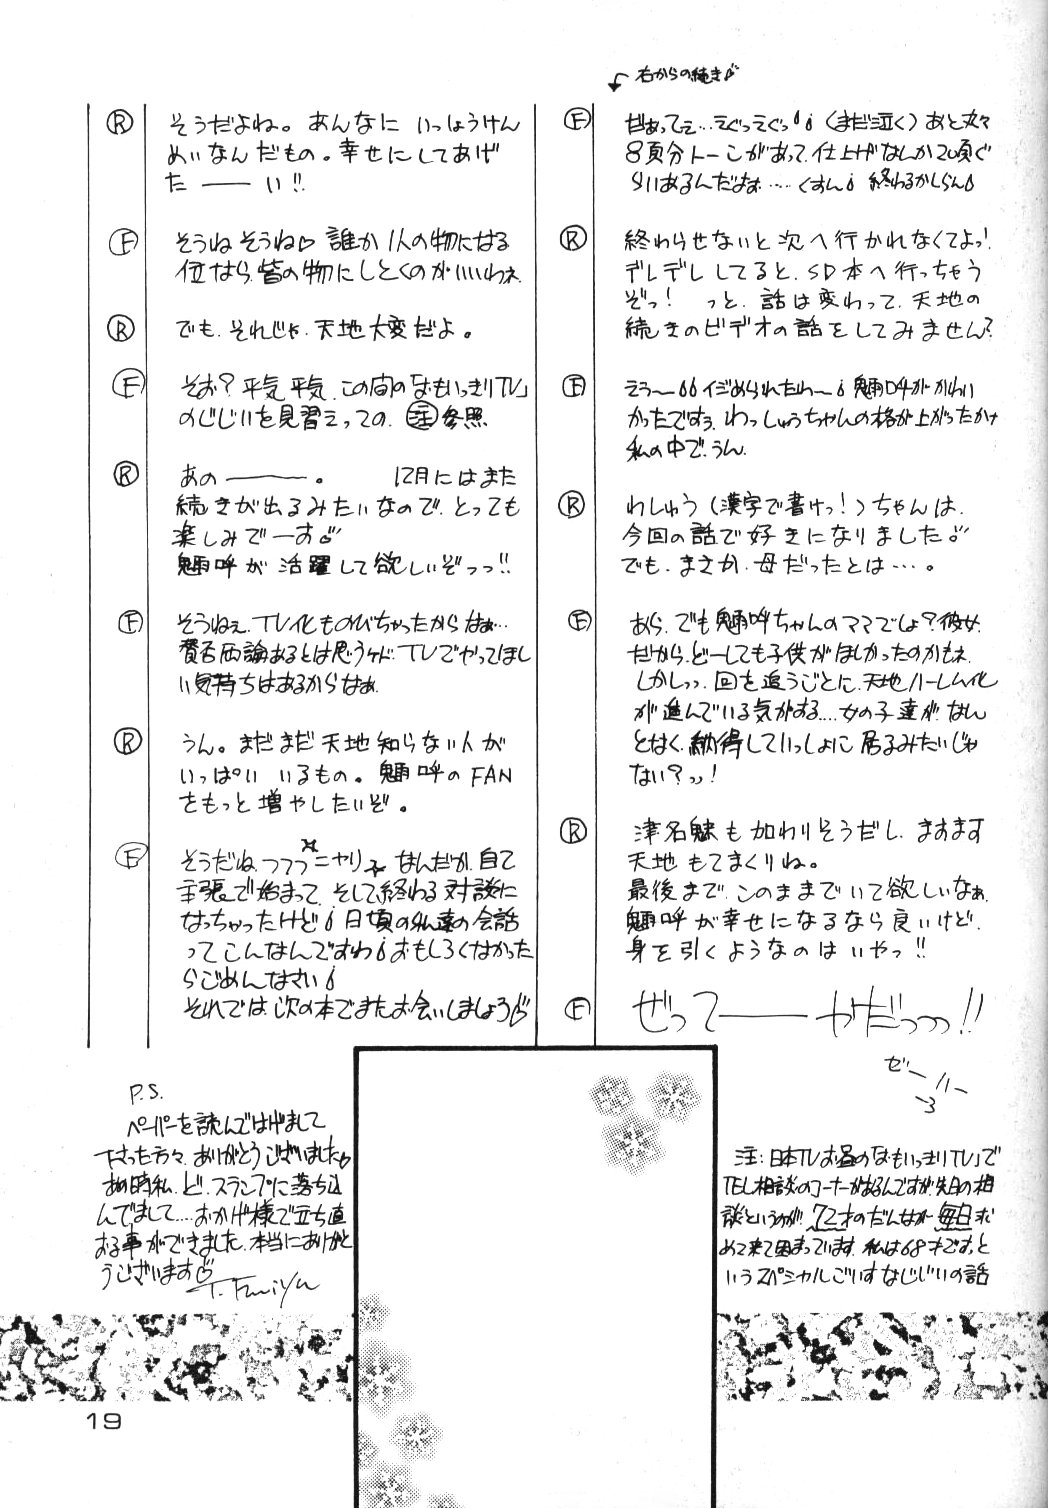 右からの続き♪
Ⓕ だぁってぇ…えぐっえぐっ（まだ泣く）あと丸々
8頁分トーンがあって、仕上げなんか20頁ぐ
らいあるんだよぉ……くすん 終わるかしらん
Ⓡ 終わらせないと次へ行かれなくてよっ！
デレデレしてると、SD本へ行っちゃう
ぞっ！ っと、話は変わって、天地の
続きのビデオの話をしてみません？
Ⓕ えう〜イジめられたわ〜 魎呼がかわい
かったですぅ、わっしゅうちゃんの格が上がったかナ
私の中で、うん。
Ⓡ わしゅう（漢字で書けっ！）ちゃんは、
今回の話で好きになりました♪
でも、まさか、母だったとは…。
Ⓕ あら、でも魎呼ちゃんのママでしょ？彼女、
だから、どーしても子供がほしかったのかもネ
しかしっっ、回を追うごとに、天地ハーレム化
が進んでいる気がする…、女の子達が、なん
となく、納得していっしょに居るみたいじゃ
ない？っっ！
Ⓡ 津名魅も加わりそうだし、ますます
天地 もてまくりね。
最後まで、このままでいて欲しいなぁ、
魎呼が幸せになるなら良いけど、
身を引くようなのはいやっ!!
Ⓕ ぜって――― やだっっっ!!
ゼーハー
Ⓡ そうだよね。あんなに いっしょうけん
めいなんだもの。幸せにしてあげ
た――い!!
Ⓕ そうねそうね♡ 誰か1人の物になる
位なら、皆の物にしとくのがいいわネ
Ⓡ でも、それじゃ、天地大変だよ。
Ⓕ そお？平気平気、この間の「おもいっきりTV」
のじじいを見習えっての、㊟参照
Ⓡ あの―――。 12月にはまた
続きが出るみたいなので、とっても
楽しみでーす♪
魎呼が 活躍して欲しいぞっっ!!
Ⓕ そうねぇ、TV化ものびちゃったからなぁ…
賛否両論あるとは思うケド、TVでやってほし
い気持ちはあるからなぁ
Ⓡ うん。まだまだ天地知らない人が
いっぱい いるもの。魎呼のFAN
をもっと増やしたいぞ。
Ⓕ そうだね、フフフ ニヤリ なんだか、自己
主張で始まって、そして終わる対談に
なっちゃったけど 日頃の私達の会話
ってこんなんですわ おもしろくなかった
らごめんなさい
それでは、次の本でまたお会いしましょう♡
P.S.
ペーパーを読んではげまして
下さった方々、ありがとうございました♡
あの時私、ど、スランプに落ち込
んでまして…、おかげ様で立ち直
おる事ができました、本当にありがと
うございます♡
T. Fumiya
注：日本TVお昼の「おもいっきりTV」で
TEL相談のコーナーがあるんですが、先日の相
談というのが、72才のだんなが毎日求
めて来て困まっています、私は68才です、と
いうスペシャルごいすなじじいの話
19